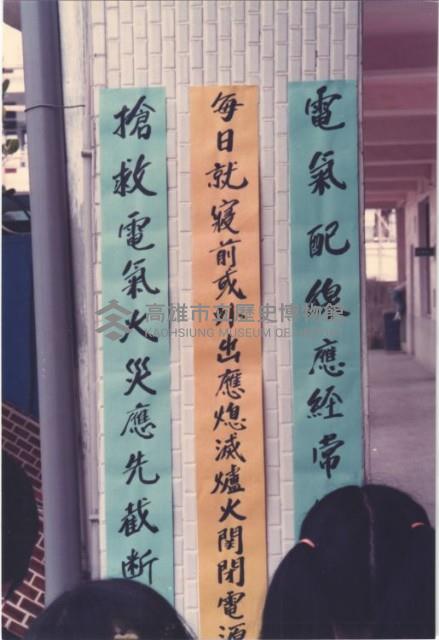 電氣配線應經常
每日就寢前或外出應熄滅爐火関閉電源
搶救電氣火災應先截斷
高雄市立歷史博物館
KAOHSIUNG MUSEUM OF HISTORY